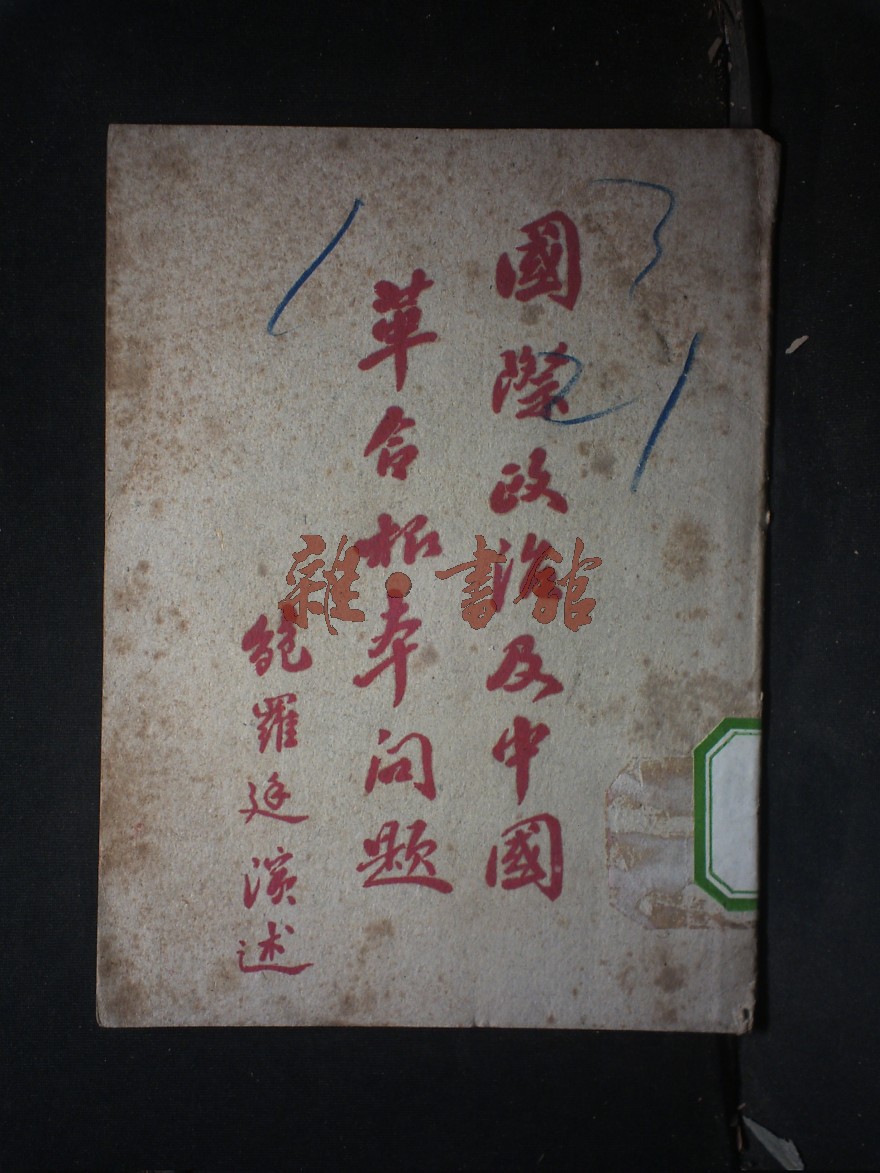 國際政治及中國
革命根本問題
鮑羅廷演述
雜·書館